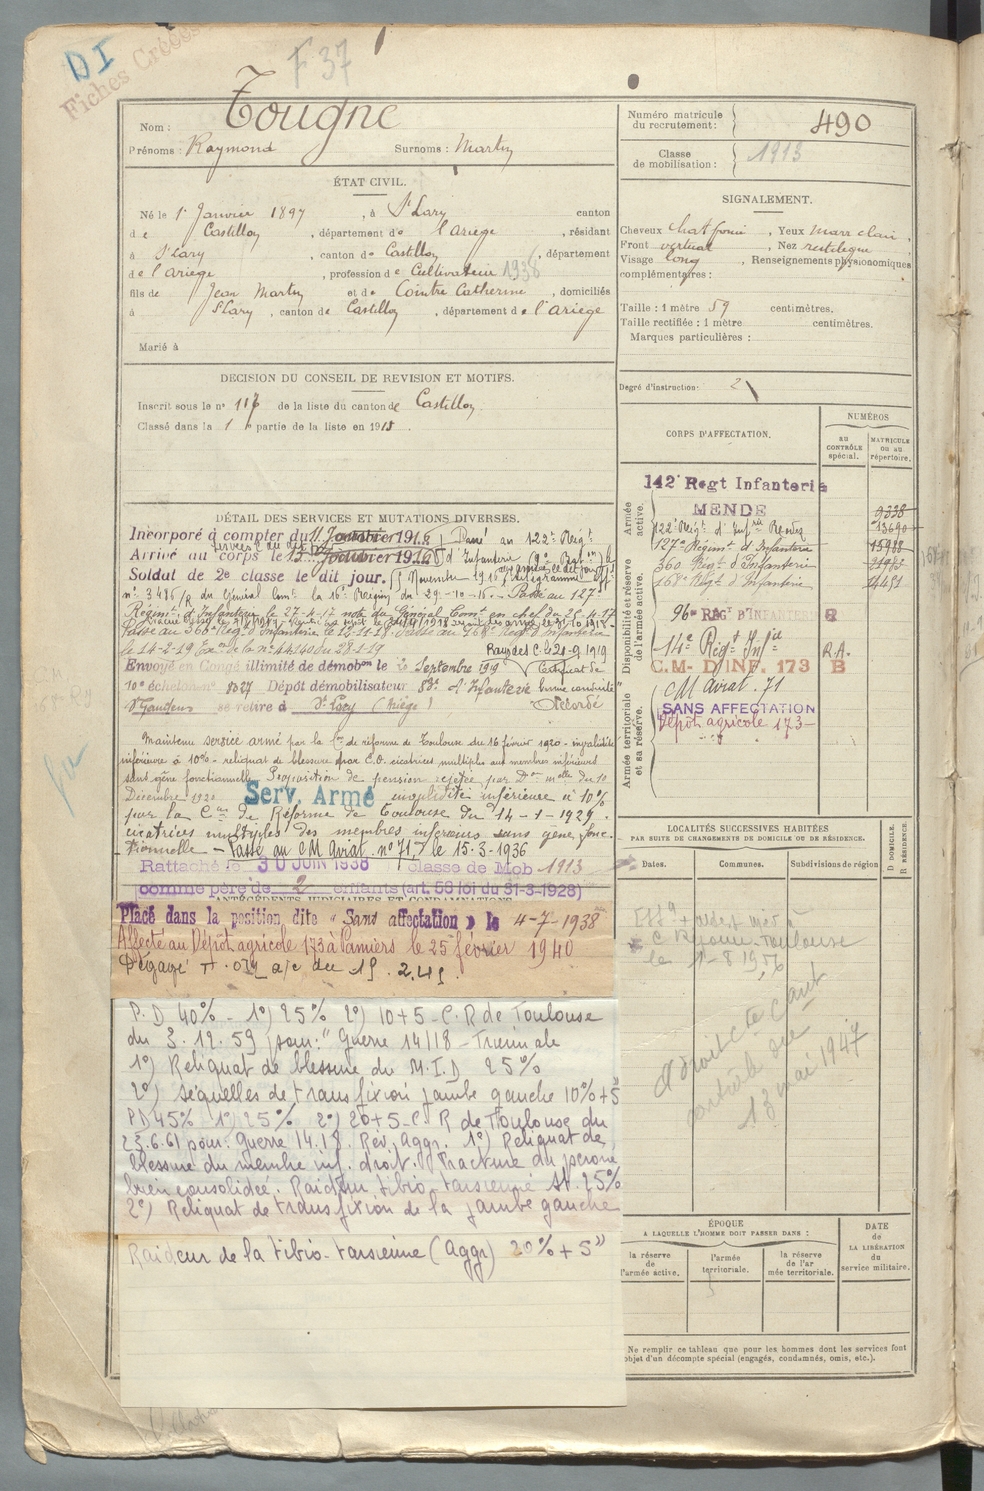 DI
Fiches Créées
F 37
Nom : Tougne
Prénoms : Raymond Surnoms : Martin
Numéro matricule du recrutement : 490
Classe de mobilisation : 1913
ÉTAT CIVIL.
Né le 1er Janvier 1897, à St Lary canton
de Castillon, département de l'Ariège, résidant
à St Lary, canton de Castillon, département
de l'Ariège, profession de Cultivateur 1938
fils de Jean Martin et de Cointre Catherine, domiciliés
à St Lary, canton de Castillon, département de l'Ariège
Marié à
SIGNALEMENT.
Cheveux chat foncé, Yeux marr clair,
Front vertical, Nez rectiligne
Visage long, Renseignements physionomiques
complémentaires :
Taille : 1 mètre 59 centimètres.
Taille rectifiée : 1 mètre centimètres.
Marques particulières :
Degré d'instruction : 2
DECISION DU CONSEIL DE REVISION ET MOTIFS.
Inscrit sous le n° 117 de la liste du canton de Castillon
Classé dans la 1 partie de la liste en 1915.
CORPS D'AFFECTATION.
NUMÉROS
au CONTRÔLE spécial.
MATRICULE ou au répertoire.
Armée active.
142e Regt Infanterie
MENDE
9338
122e Régt d'Infrie Rodez 13690
127e Régiment d'Infanterie 15988
360 Régt d'Infanterie
168e Régt d'Infanterie 4451
Disponibilité et réserve de l'armée active.
96e RÉGt D'INFANTERIE R
14e Régt Infie R.A.
C.M. D'INF. 173 B
CM Aviat. 71
SANS AFFECTATION
Dépôt agricole 173
Armée territoriale et sa réserve.
DÉTAIL DES SERVICES ET MUTATIONS DIVERSES.
Incorporé à compter du 11 1916 Passé au 122e Régt
Arrivé au corps le 1916 d'Infanterie
Soldat de 2e classe le dit jour. Novembre 1916
n° 3486/R du Général Comt la 16e Région du 29-10-16. Passé au 127e
Régimt d'Infanterie le 27-4-17 note du Général Comt en chef du 25-4-17
Passé au 360e Régt d'Infanterie le 12-11-18. Passé au 168e Régt d'Infanterie
le 14-2-19 44140 du 28-1-19 Rayé des C. le 20-9-1919
Envoyé en Congé illimité de démobon le 20 Septembre 1919 Certificat de
10e échelon n° 8027 Dépôt démobilisateur 83e d'Infanterie bonne conduite
St Gaudens se retire à St Lary (Ariège) Accordé
Maintenu service armé par la Con de réforme de Toulouse du 16 février 1920 - invalidité
inférieure à 10% - reliquat de blessure par E.O. cicatrices multiples aux membres inférieurs
sans gêne fonctionnelle. Proposition de pension rejetée par Don mlle du 10
Décembre 1920 Serv. Armé invalidité inférieure à 10%
par la Con de Réforme de Toulouse du 14-1-1929.
cicatrices multiples des membres inférieurs sans gêne fonc-
tionnelle - Passé au CM Aviat. n° 71, le 15-3-1936
Rattaché le 30 JUIN 1938 classe de Mob 1913
comme père de 2 enfants (art. 58 loi du 31-3-1928)
ANTÉCÉDENTS JUDICIAIRES ET CONDAMNATIONS.
Placé dans la position dite « Sans affectation » le 4-7-1938
Affecté au Dépôt agricole 173 à Pamiers le 25 février 1940
Dégagé a/c du 15.2.41.
P.D 40% - 1°) 25% 2°) 10+5 - C.R de Toulouse
du 3.12.59 pour : "Guerre 14/18 - Triennale
1°) Reliquat de blessure du M.I.D 25%
2°) séquelles de transfixion jambe gauche 10%+5
PD 45% 1°) 25% 2°) 20+5 - C.R de Toulouse du
23.6.61 pour : Guerre 14.18. Rév. Aggr. 1°) Reliquat de
blessure du membre inf. droit. Fracture du péroné
bien consolidée. Raideur tibio-tarsienne St. 25%
2°) Reliquat de transfixion de la jambe gauche
Raideur de la tibio-tarsienne (Aggr) 20%+5"
LOCALITÉS SUCCESSIVES HABITÉES
PAR SUITE DE CHANGEMENTS DE DOMICILE OU DE RÉSIDENCE.
Dates. Communes. Subdivisions de région
D DOMICILE.
R RÉSIDENCE.
C Réforme Toulouse
le 1-8 1956
A droit Cte Cant
contrôle
13 mai 1947
ÉPOQUE
A LAQUELLE L'HOMME DOIT PASSER DANS :
la réserve de l'armée active.
l'armée territoriale.
la réserve de l'armée territoriale.
DATE de LA LIBÉRATION du service militaire.
Ne remplir ce tableau que pour les hommes dont les services font
objet d'un décompte spécial (engagés, condamnés, omis, etc.).